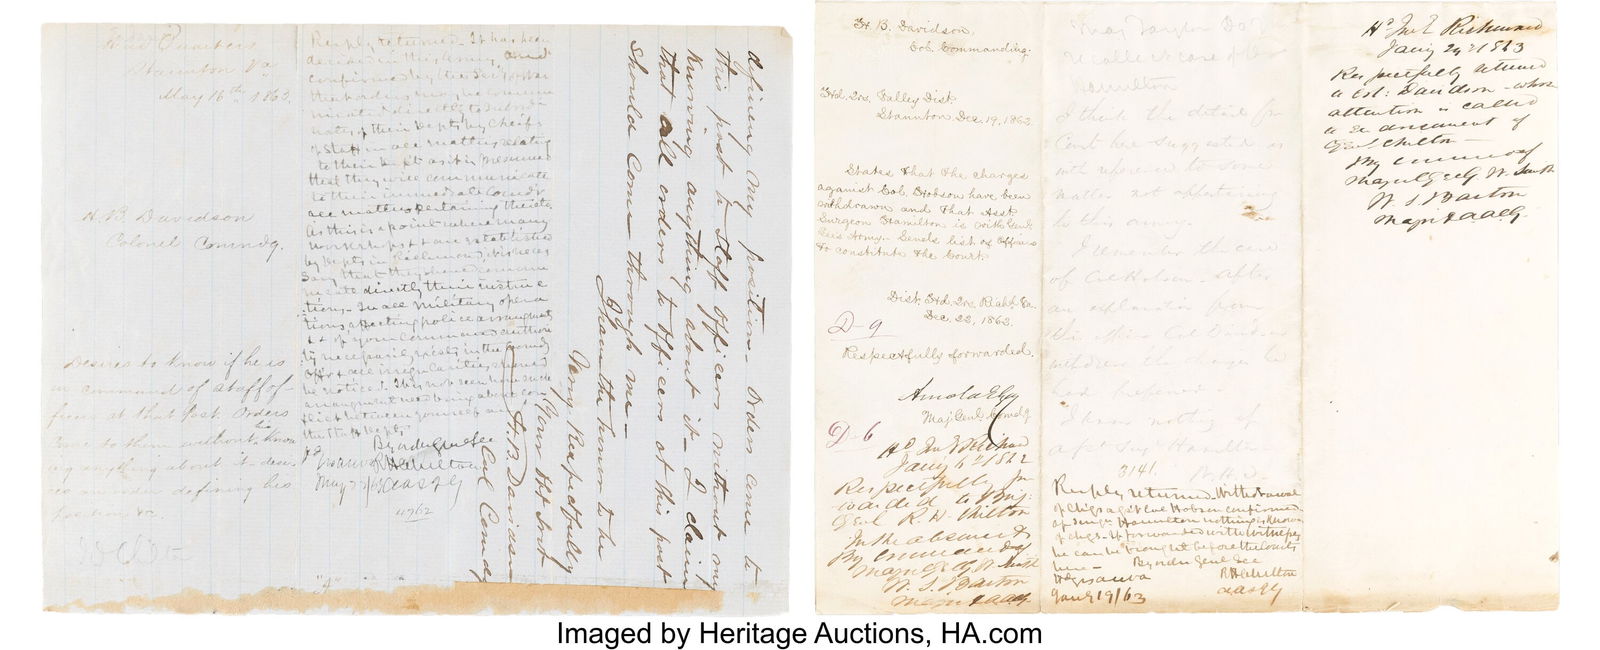 Head Quarters
Staunton Va
May 16th 1863.
H. B. Davidson
Colonel Comndg.
Desires to know if he is
in command of Staff of-
ficers at that Post. Orders
come to them without his know
ing anything about it - desir
es an order defining his
position &c.
Resply returned. It has been
decided in this Army, and
confirmed by the Sec. of War
that orders may be commu
nicated directly to subordi
nates of their Depts by Chiefs
of Staff in all matters relating
to their Dept as it is presumed
that they will communicate
to their immediate Comdr
all matters pertaining thereto
As this is a point where many
workshops & are established
by Depts in Richmond, it is neces
sary that they should commu
nicate directly their instruc
tions. In all military opera
tions affecting police arrangements
& of your command authori
ty necessarily rests in the Comdg
Offr & all irregularities should
be noticed. It is not seen how such
arrangement need bring about con
flict between yourself and
the Staff Depts.
By order Genl Lee
R H Chilton
A A & I G
May 22/63
defining my position - Orders come to
this post to Staff officers without my
knowing anything about it - I claim
that all orders to officers at this post
should come through me -
I have the honor to be
Very Respectfully
Your Obt Svt
H B Davidson
Col Comdg
H. B. Davidson,
Col. Commanding.
Hd. Qrs. Valley Dist
Staunton, Dec. 19, 1862.
States that the charges
against Col. Hobson have been
withdrawn and that Asst
Surgeon Hamilton is with Genl
Lee's Army. Sends list of Officers
to constitute the Court.
Dist. Hd. Qrs. Richd. Va.
Dec. 22, 1862.
D-9
Respectfully forwarded.
Arnold Elzey
Maj. Genl Comdg
D-6
Respectfully for-
warded to Brig:
Genl R. H. Chilton
In the absence &
By command of
Major Genl G. W. Smith
W. S. Barton
Major & A A G
in case of
Hamilton
I think the detail for
Court here suggested is
with reference to some
matter not appertaining
to this army.
I remember the case
of Col Hobson - after
an explanation from
this office Col
withdrew the charges he
had preferred
I know nothing of
Hamilton
3141.
Resply returned. Withdrawal
of chgs agst Col Hobson confirmed
of Surgn Hamilton nothing is known
of chgs. If forwarded with witnesses
he can be brought before the Courts
here -
By order Genl Lee
R H Chilton
A A & I G
Jany 19/63
Jany 24th 1863
Respectfully returned
to Col: Davidson - whose
attention is called
to endorsement of
Genl Chilton -
By command of
Major Genl G. W. Smith
W. S. Barton
Major & A A G
Imaged by Heritage Auctions, HA.com